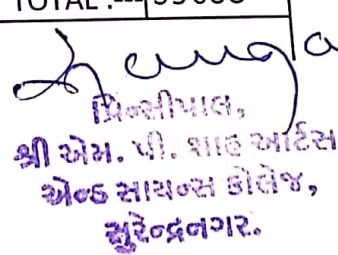 TOTAL :---
પ્રિન્સીપાલ,
શ્રી એમ. પી. શાહ આર્ટસ
એન્ડ સાયન્સ કોલેજ,
સુરેન્દ્રનગર.